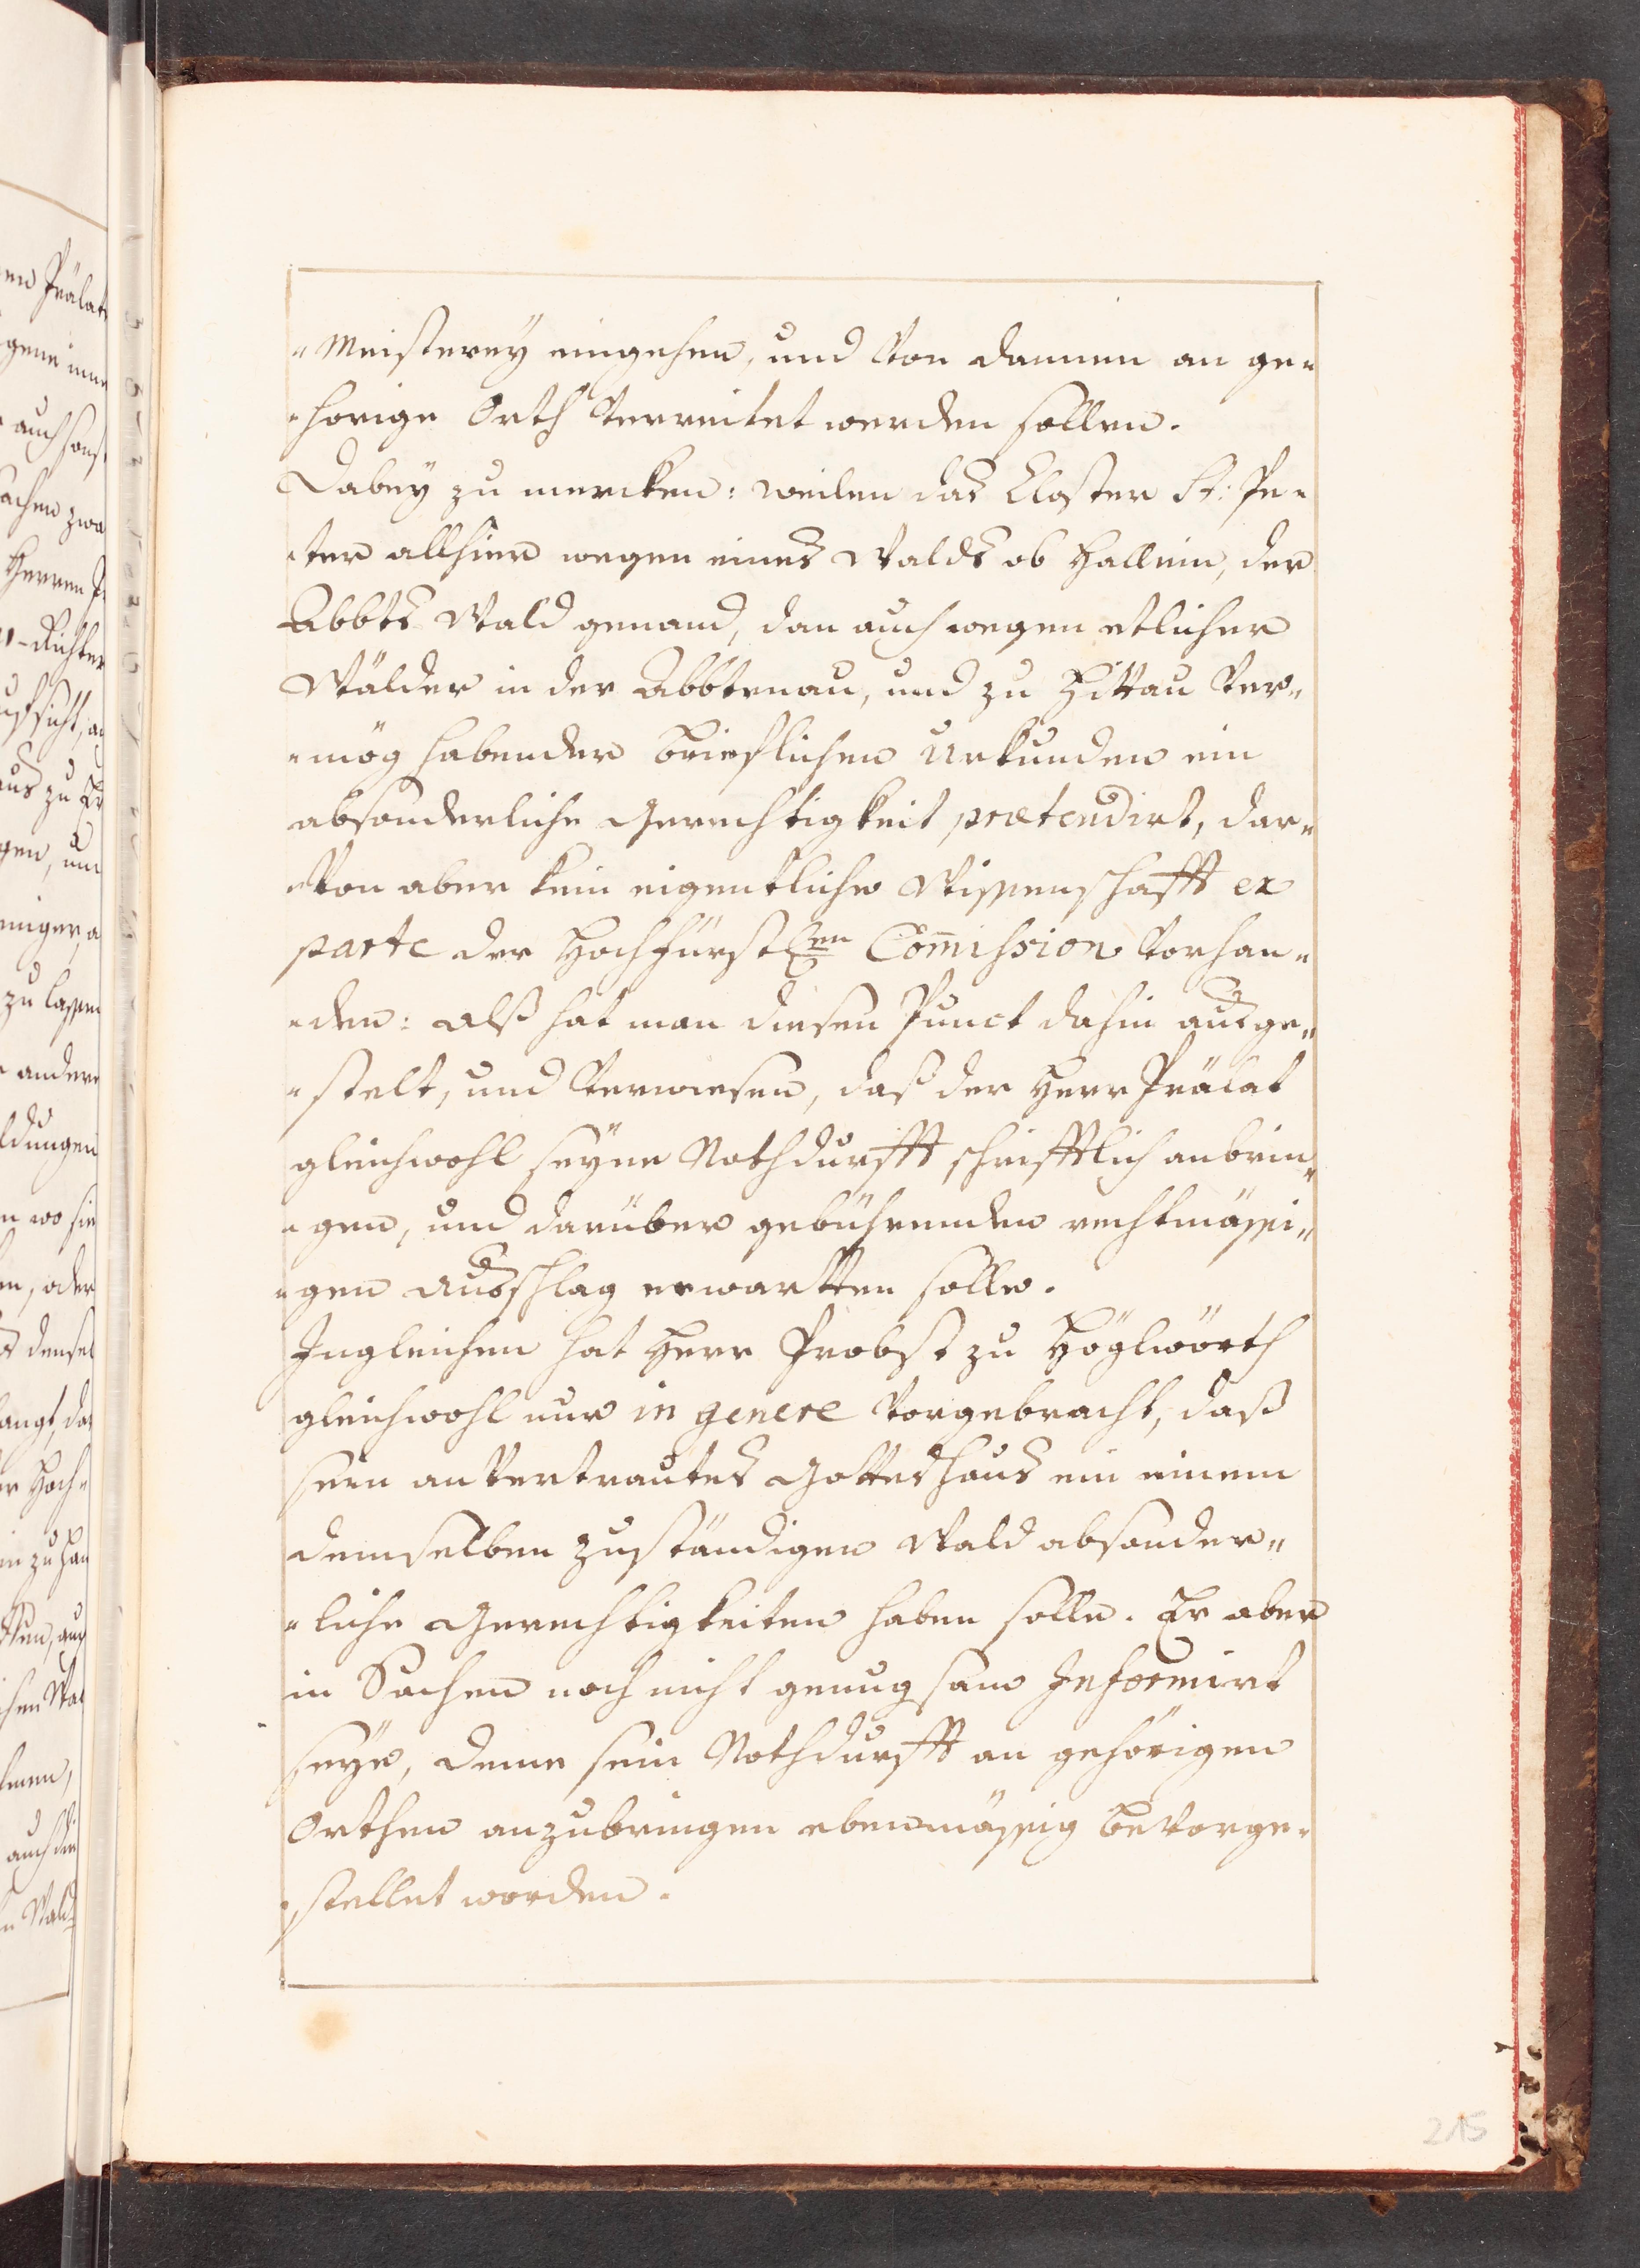 "Meisterey eingehen, und von dannen an ge"
"hörige Orth verreitet werden sollen.
Dabey zu mercken: weilen das Closter St: Pe"
"ter allhier wegen eines Walds ob Hallein, der
Abbts Wald genand, dan auch wegen etlicher
Wälder in der Abbtenau, und zu Hittau ver"
"mög habender brieflichen Urkunden ein
absonderliche Gerechtigkeit prætendirt, dar"
"von aber kein eigentliche Wissenschafft ex
parte der Hochfürstl:en Com̄ission vorhan"
"den: alß hat man diesen Punct dahin ausge"
"stelt, und verwiesen, daß der Herr Prälat
gleichwohl seyne Nothdurfft schrifftlich anbrin"
"gen, und darüber gebührenden rechtmässi"
"gen Ausschlag erwartten solle.
Ingleichen hat Herr Probst zu Höglwörth
gleichwohl nur in genere vorgebracht, daß
sein anvertrautes Gotteshaus ein einem
demselben zuständigen Wald absonder"
"liche Gerechtigkeiten haben solle. Er aber
in Sachen noch nicht genugsam Informirt
seye, deme sein Nothdurfft an gehörigen
Orthen anzubringen ebenmässig bevorge"
"stellet worden.
215